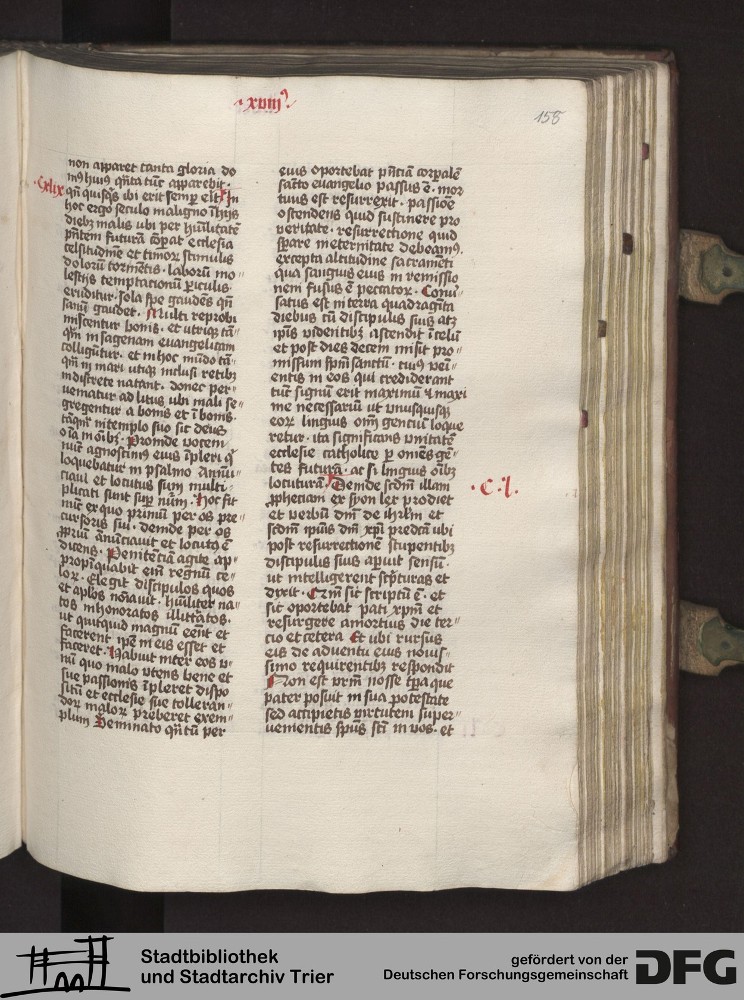 xviij
158
non apparet tanta gloria do
mꝰ huiꝰ qn̄ta tūc apparebit.
Cxlix
qn̄ quisqs ibi erit semp̄ eīt In
hoc ergo seculo maligno ī hijs
diebꝫ malis ubi per hūilitatē
pn̄tem futurā cōpat ecclesia
celsitudinē et timoꝝ stimulis
dolorū tormētis. laborū mo
lestijs temptationū ꝑiculis
eruditur. sola spe gaudēs qn̄
sanū gaudet. Multi reprobi
miscentur bonis. et utriqꝫ tā
qm̄ in sagenam euangelicam
colligūtur. et in hoc mūdo tā
qm̄ in mari utiqꝫ inclusi retibꝫ
indiscrete natant. donec per
ueniatur ad litus. ubi mali se
gregentur a bonis et ī bonis.
tāqm̄ in templo suo sit deus
oīa in oībꝫ. Proinde vocem
nūc agnoscimꝰ eius īpleri qͥ
loquebatur in psalmo Annū
ciaui et locutus sum multi
plicati sunt suꝑ nūm. Hoc fit
nūc ex quo primū per os pre
cursoris sui. deinde per os
ꝓpriū anūciauit et locutꝰ ē
dicens. Penitēciā agite ap
propīquabit eīm regnū ce
loꝝ. Elegit discipulos quos
et aplos noīauit. hūiliter na
tos inhonoratos illitt͛atos.
ut quitquid magnū eēnt et
facerent ipē in eis esset et
faceret. Habuit inter eos v
nū quo malo vtens bene et
sue passionis īpleret dispo
sitū et ecclesie sue tolleran
doꝝ maloꝝ preberet exem
plum Seminato qn̄tū per
eius oportebat pn̄tiā corꝑalē
sācto euangelio passus ē. mor
tuus est resurrexit. passiōe
ostendens quid sustinere pro
veritate. resurrectione quid
sperare in eternitate debeamꝰ.
excepta altitudine sacramēti
qua sanguis eius in remissio
nem fusus ē peccatoꝝ. Conū
satus est in terra quadragīta
diebus cū discipulis suis atꝫ
ipīs videntibꝫ ascendit ī celū
et post dies decem misit pro
missum spm̄ sanctū. cuiꝰ veī
entis in eos qui crediderant
tūc signū erit maximū ⁊ maxi
me necessariū ut vnusquisqꝫ
eoꝝ linguis om̄ gentiū loque
retur. ita significans vnitatē
ecclesie catholice ꝑ omēs gē
tes futurā. ac si linguis oībꝫ
locuturā. Deinde scdm̄ illam
.C.l.
ꝓphetiam ex syon lex prodiet
et verbū dnī de ihrl̄m et
scdm̄ ipius dnī xpī predcā ubi
post resurrectionē stupentibꝫ
discipulis suis apuit sensū.
ut intelligerent scpturas et
dixit. Qm̄ sic scriptū ē. et
sic oportebat pati xpm̄ et
resurgere a mortuis die ter
cio et cetera Et ubi rursus
eis de aduentu eius nouis
simo requirentibꝫ respondit
Non est vrm̄ nosse tꝑa que
pater posuit in sua potestate
sed accipietis virtutem super
uenientis spūs scī in vos. et
Stadtbibliothek
und Stadtarchiv Trier
gefördert von der
Deutschen Forschungsgemeinschaft
DFG